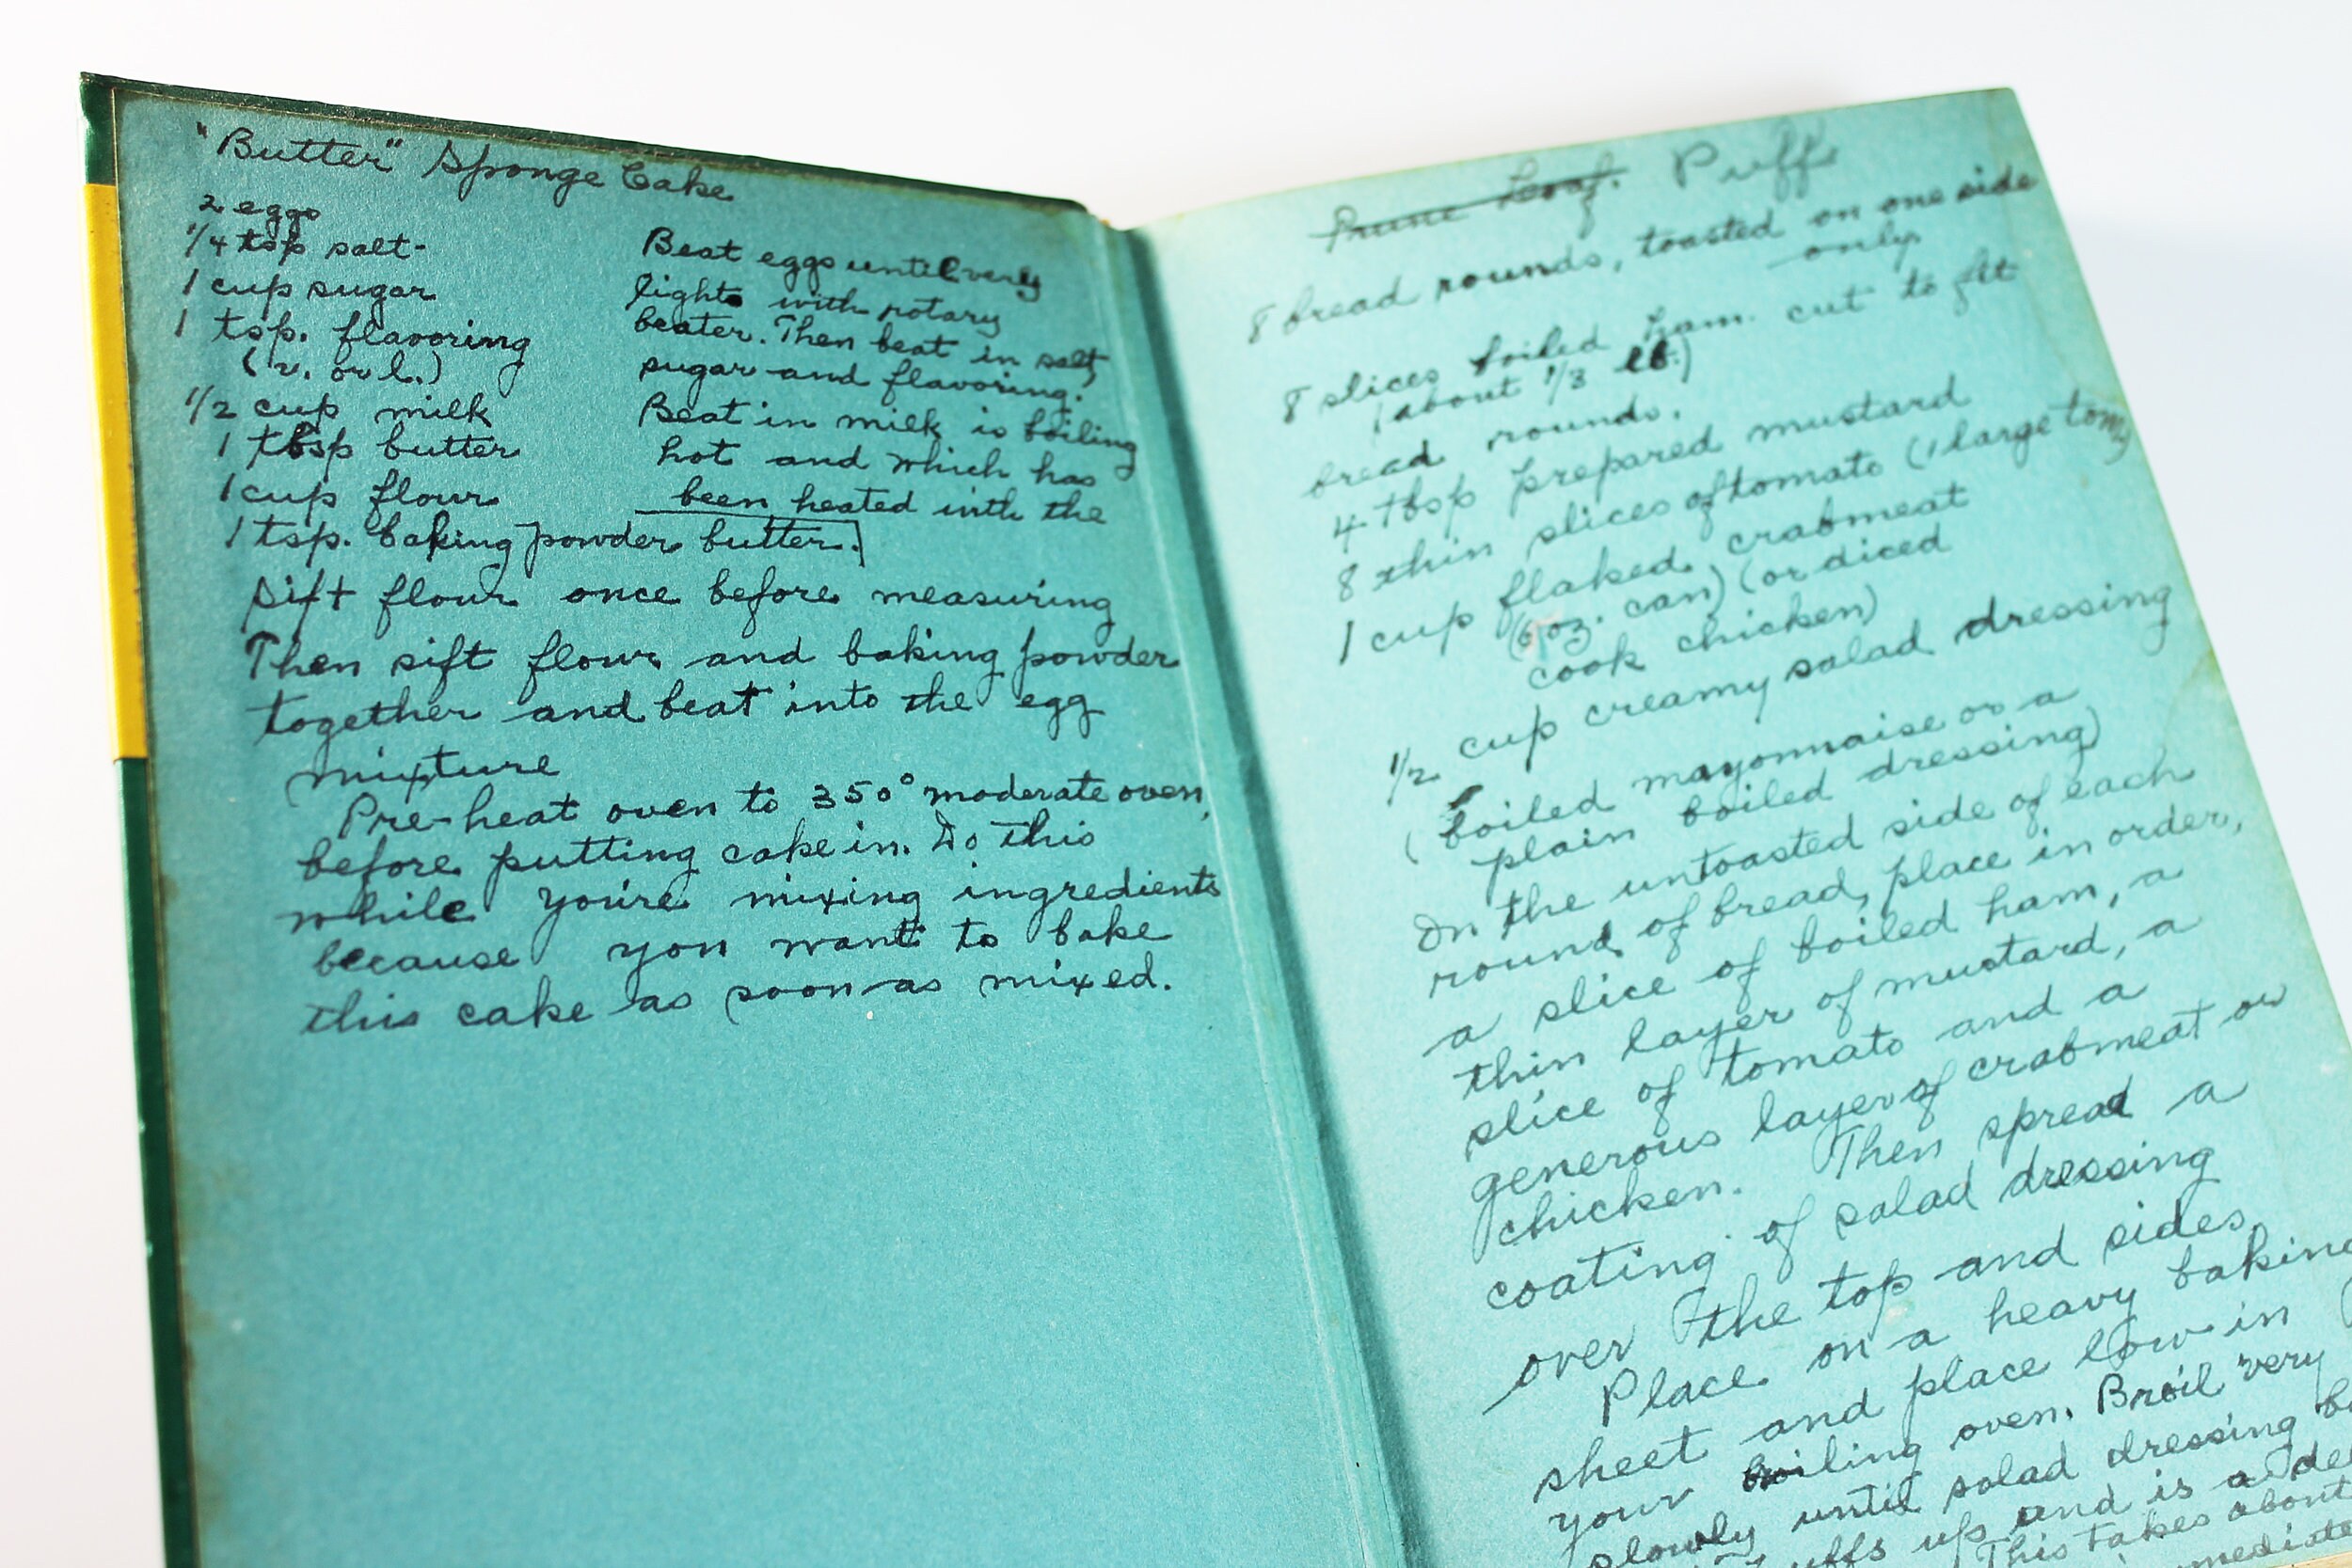 "Butter" Sponge Cake
2 eggs
1/4 tsp salt
1 cup sugar
1 tsp. flavoring
(v. or l.)
1/2 cup milk
1 tbsp butter
1 cup flour
1 tsp. baking powder
Beat eggs until very
light with rotary
beater. Then beat in salt,
sugar and flavoring.
Beat in milk is boiling
hot and which has
been heated with the
butter.
Sift flour once before measuring
Then sift flour and baking powder
together and beat into the egg
mixture
Pre-heat oven to 350° moderate oven,
before putting cake in. Do this
while you're mixing ingredients
because you want to bake
this cake as soon as mixed.
Prune Loaf. Puff
8 bread rounds, toasted on one side
only
8 slices boiled ham cut to fit
(about 1/3 lb.)
bread rounds.
4 tbsp prepared mustard
8 thin slices of tomato (1 large tom)
1 cup flaked crabmeat
(6 oz. can) (or diced
cook chicken)
1/2 cup creamy salad dressing
(boiled mayonnaise or a
plain boiled dressing)
On the untoasted side of each
round of bread, place in order,
a slice of boiled ham, a
thin layer of mustard, a
slice of tomato and a
generous layer of crabmeat or
chicken. Then spread a
coating of salad dressing
over the top and sides.
Place on a heavy baking
sheet and place low in
your broiling oven. Broil very
slowly until salad dressing
puffs up and is a
This takes about